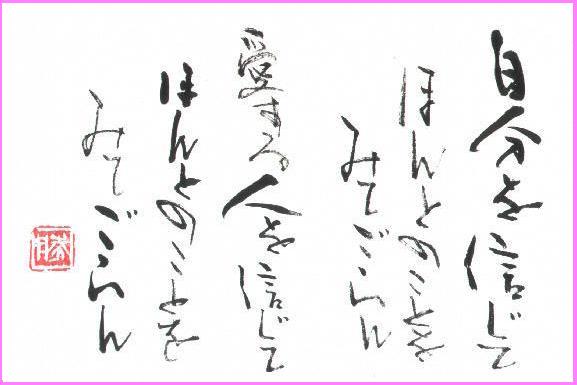 自分を信じて
ほんとのことを
みてごらん
愛する人を信じて
ほんとのことを
みてごらん